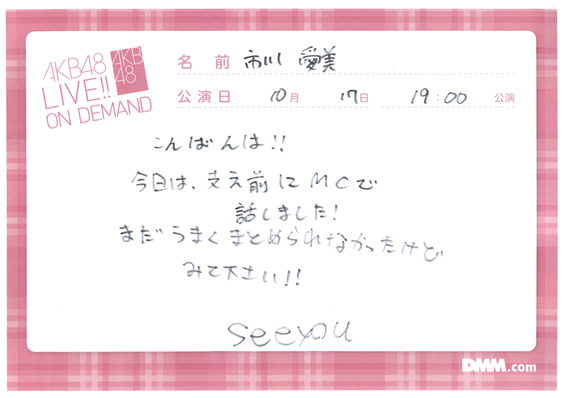 AKB48
LIVE!!
ON DEMAND
AKB
48
名 前 市川 愛美
公演日 10月 17日 19:00 公演
こんばんは!!
今日は、支え前にMCで
話しました!
まだうまくまとめられなかったけど
みて下さい!!
see you
DMM.com